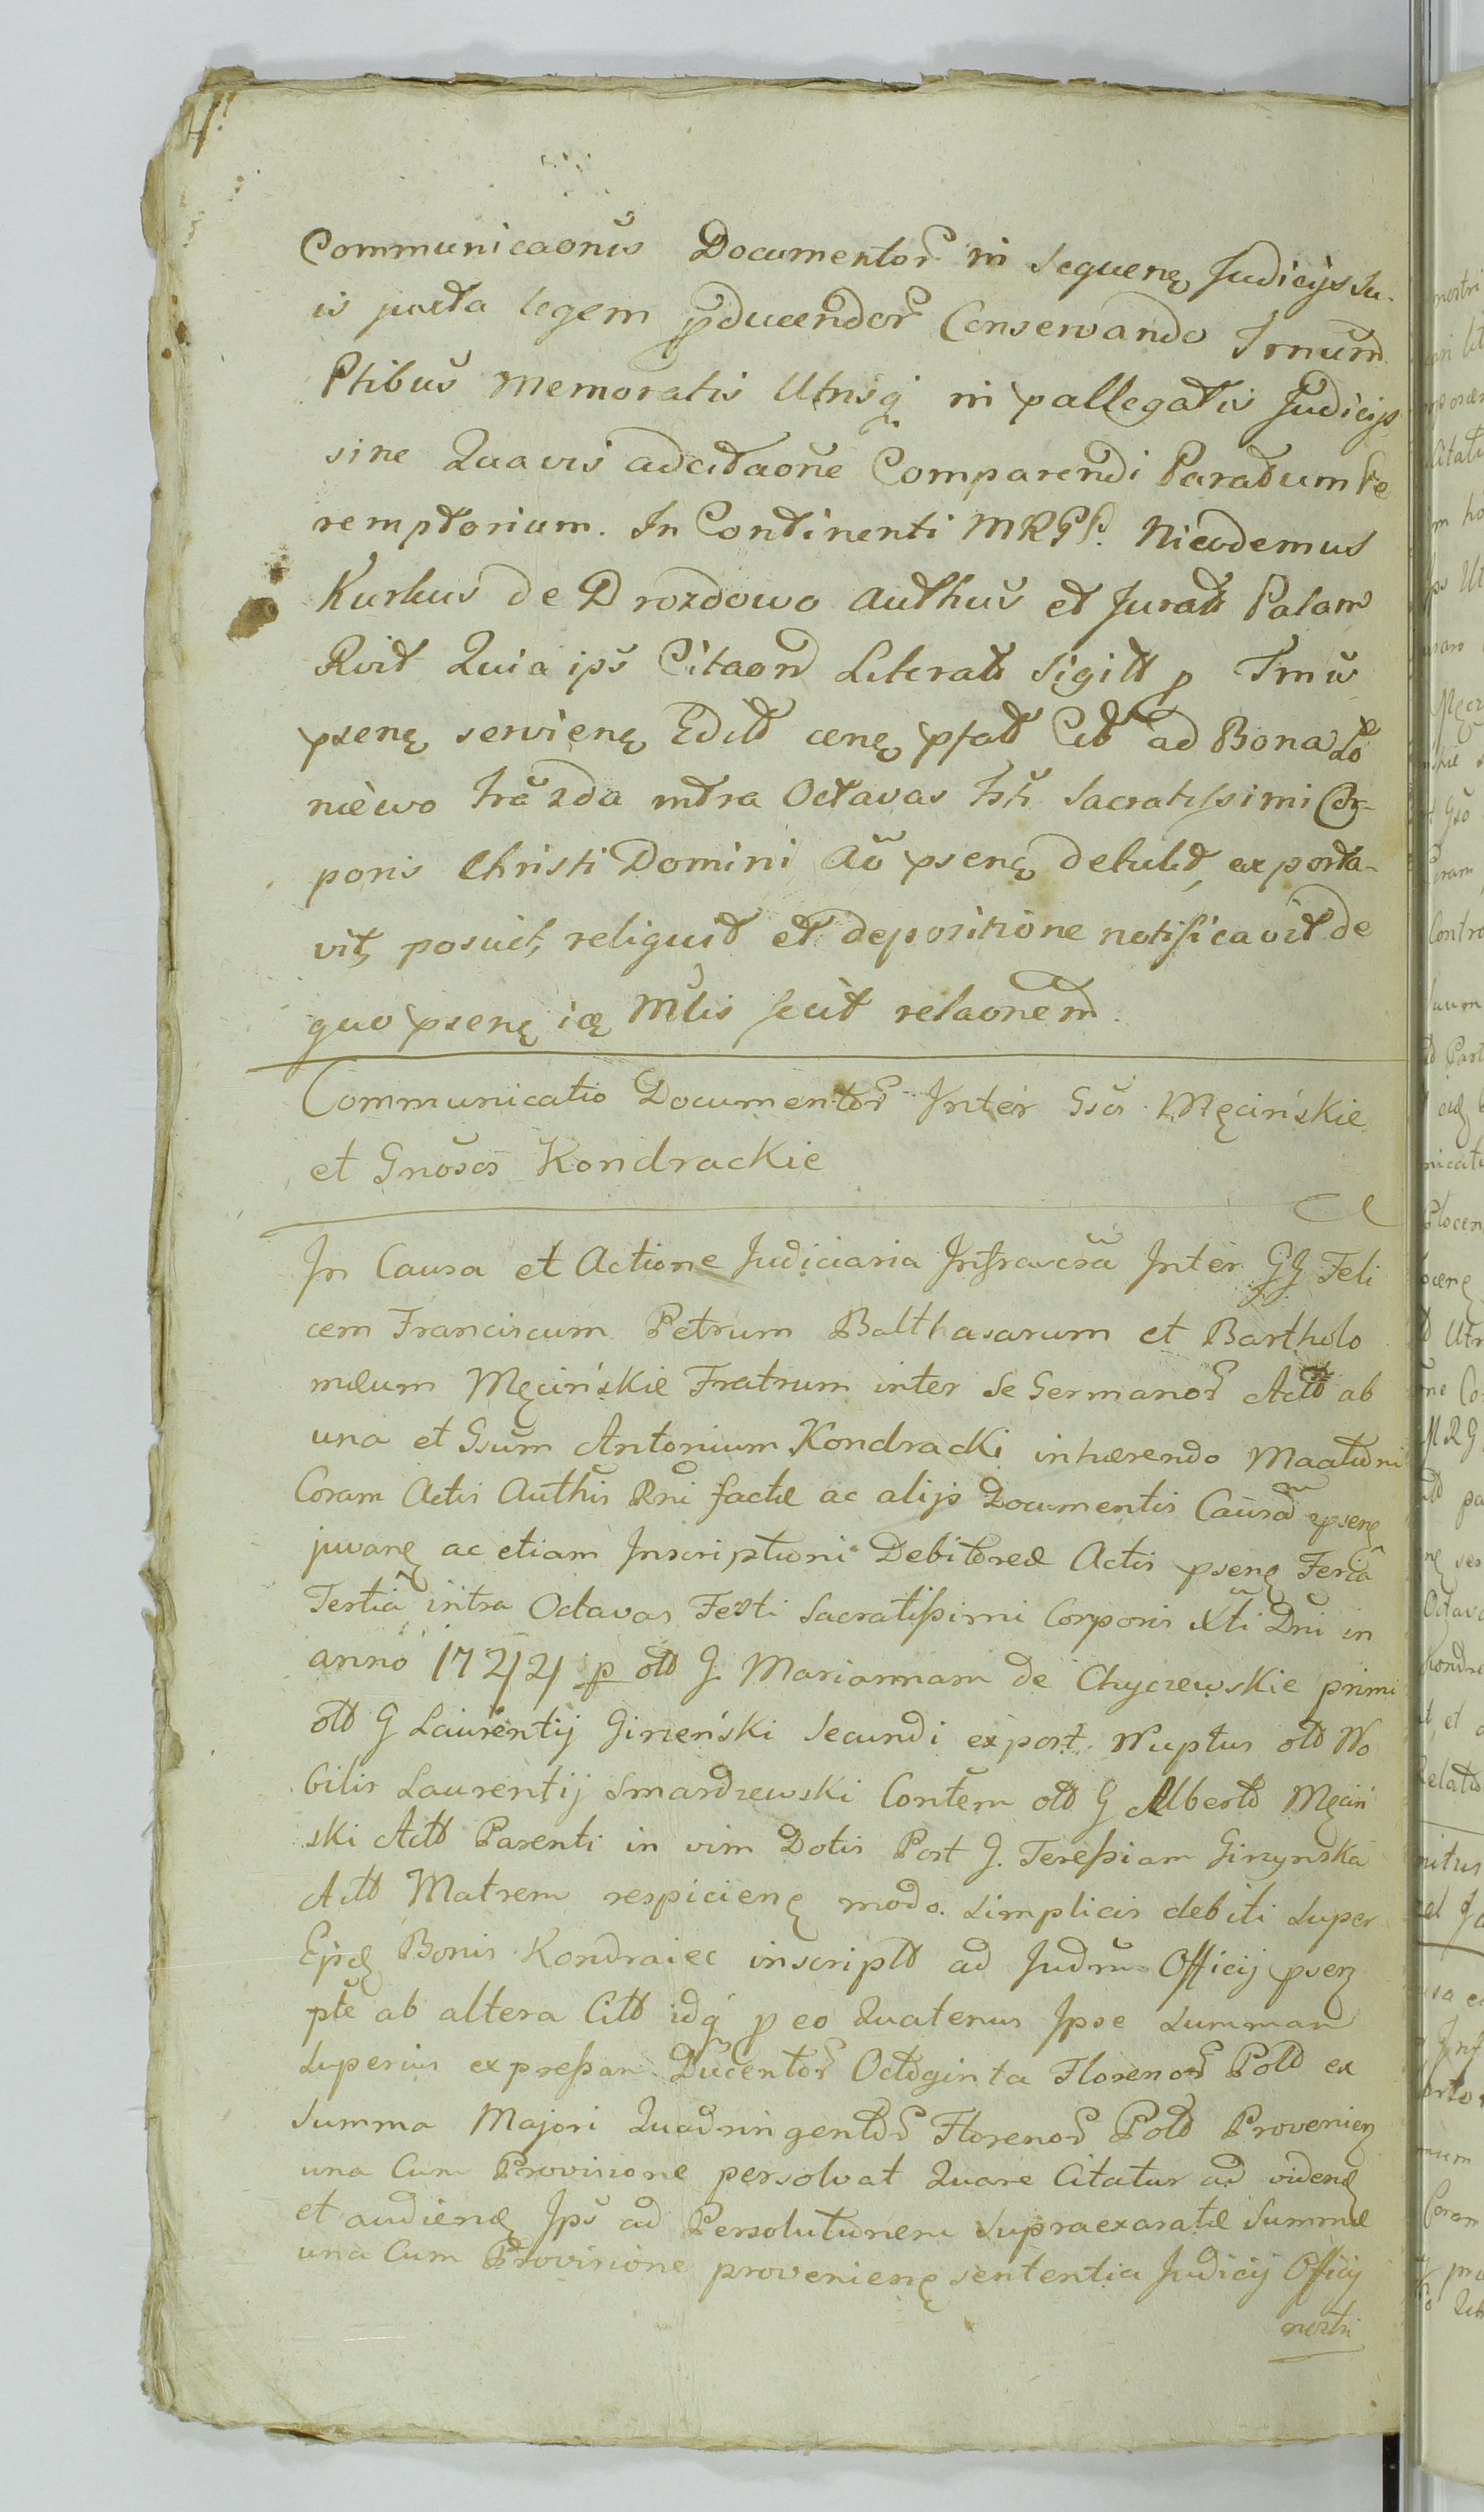 Communicaonis Documentor in sequenę Judicijs su-
is juxta legem pducendor Conservando Trnum
Ptibus memoratis Utrisq in pallegatis Judicijs
sine Quavis adcitaone Comparendi Paratum Pe
remptorium. In Continenti MRGP. Nicodemus
Kurkus de Drozdowo Authus et Jurat Palam
Rvit Quia ips Citaon Literat Sigill p Tmis
psenę servienę Edit cenę pfat Cit ad Bona Lo
niewo fra 2da intra Octavas fsti Sacratissimi Cor-
poris Christi Domini Ao psenę detulit, exporta-
vit, posuit, reliquit et depositione notificavit de
quo psenę ię Mlis fecit relaonem.
Communicatio Documentor Inter Gsos Męcińskie
et Gnosos Kondrackie
In Causa et Actione Judiciaria Infrascra Inter GG Feli
cem Franciscum Petrum Balthasarum et Bartholo
mæum Męcińskie Fratrum inter se Germanor Actt ab
una et Gsum Antonium Kondracki inhærendo Maationi
Coram Actis Authis Rni factæ ac alijs Documentis Causam psenę
juvanę ac etiam Inscriptioni Debitoreæ Actis psenę Feria
Tertia intra Octavas Festi Sacratissimi Corporis Xti Dni in
anno 1744 p olt G. Mariannam de Chyczewskie primi
olt G Laurentij Gizeński secundi expost Nuptus olt No
bilis Laurentij Smardzewski Contem olt G Albertt Męciń
ski Actt Parenti in vim Dotis Post G. Teressiam Gizynska
Actt Matrem respicienę modo simplicis debiti super
Ejdę Bonis Kondraiec inscriptt ad Judm Officij psenę
pte ab altera Citt idq p eo Quatenus Ipse summam
superius expressam Ducentor Octoginta Florenor Poltt ex
summa Majori Quadringentor Florenor Poltt Provenienę
una Cum Provisione persolvat Quare Citatur ad videnę
et audienę Ips ad Persolutionem supraexaratæ Summæ
una Cum Provisione provenienę sententia Judicij Officij
nostri